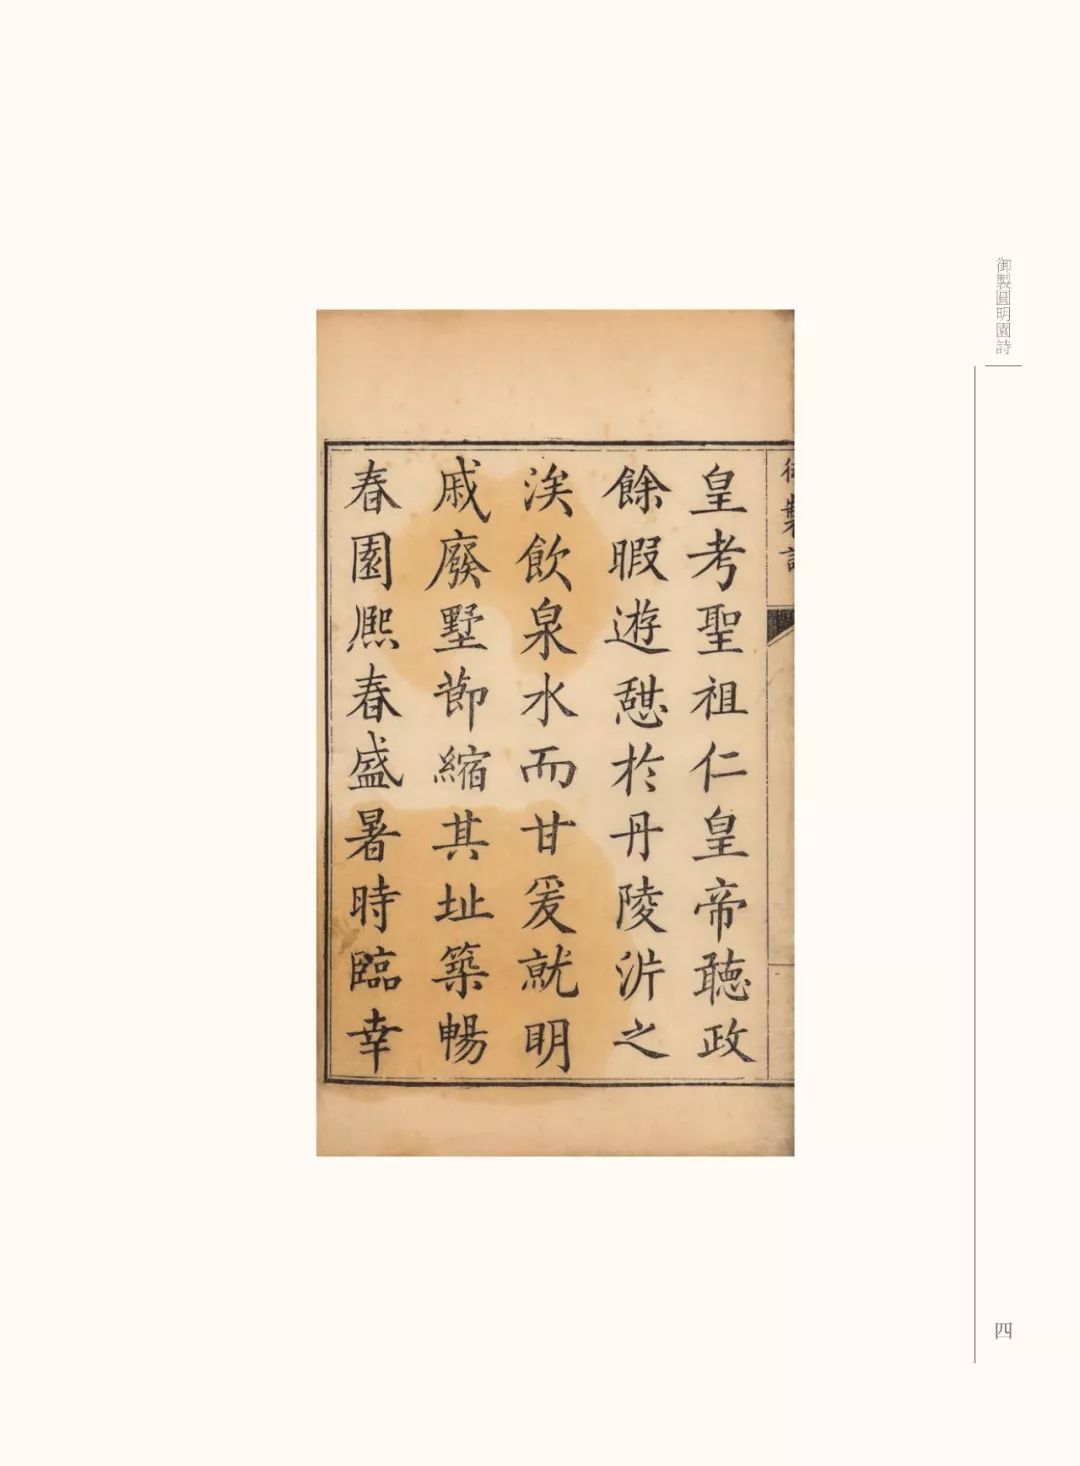 御製圓明園詩
御製詩
皇考聖祖仁皇帝聽政
餘暇遊憩於丹陵沜之
涘飲泉水而甘爰就明
戚廢墅節縮其址築暢
春園熈春盛暑時臨幸
四